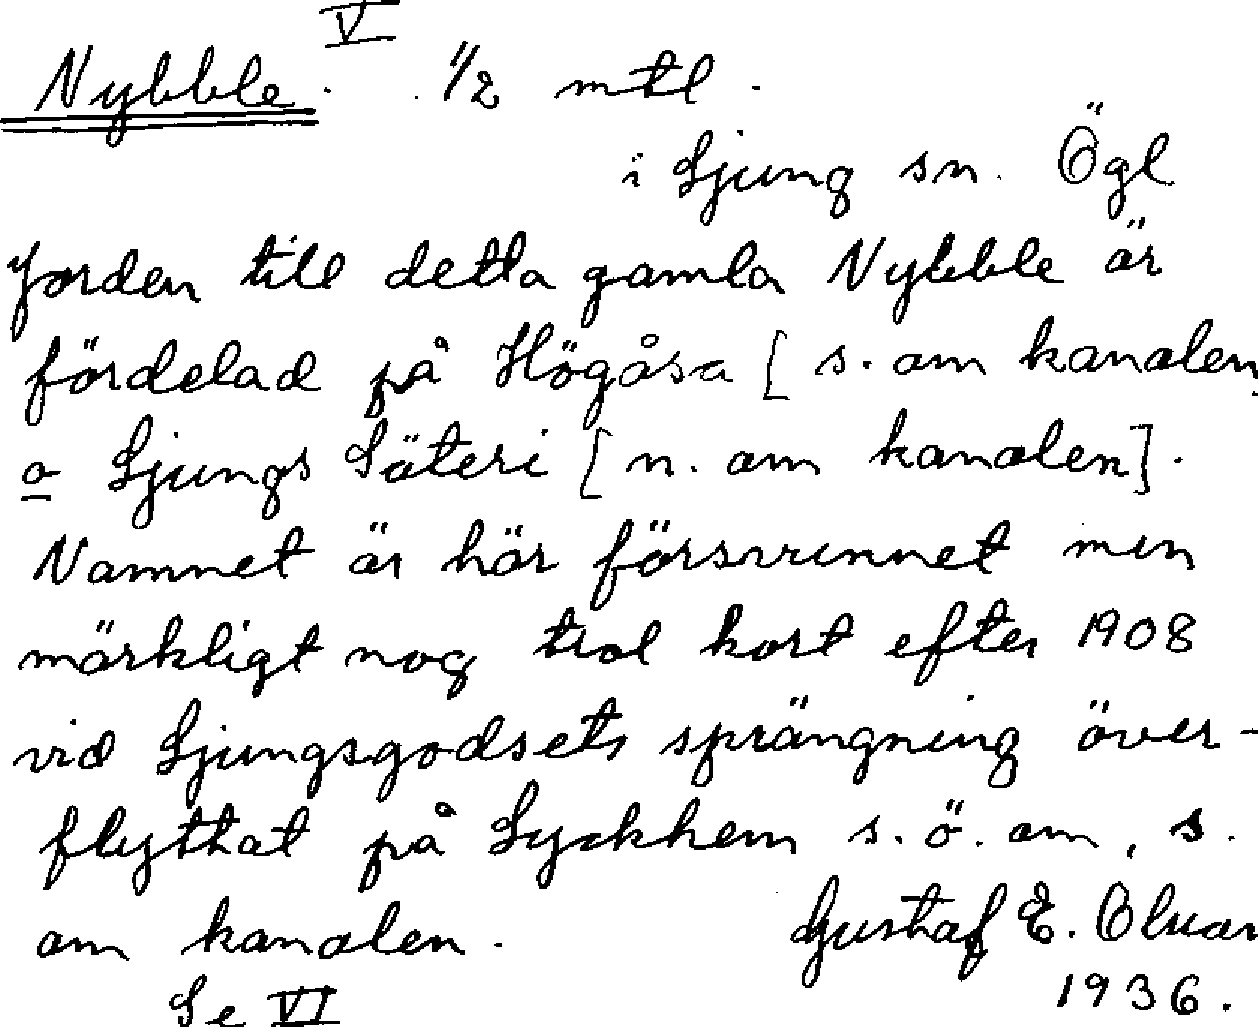 V
Nybble. 1/2 mtl.
i Ljung sn. Ögl
Jorden till detta gamla Nybble är
fördelad på Högåsa [s. om kanalen
o Ljungs Säteri [n. om kanalen].
Namnet är här försvunnet men
märkligt nog trol kort efter 1908
vid Ljungsgodsets sprängning över-
flyttat på Lyckhem s. ö. om, s.
om kanalen. Gustaf E.
Se VI 1936.